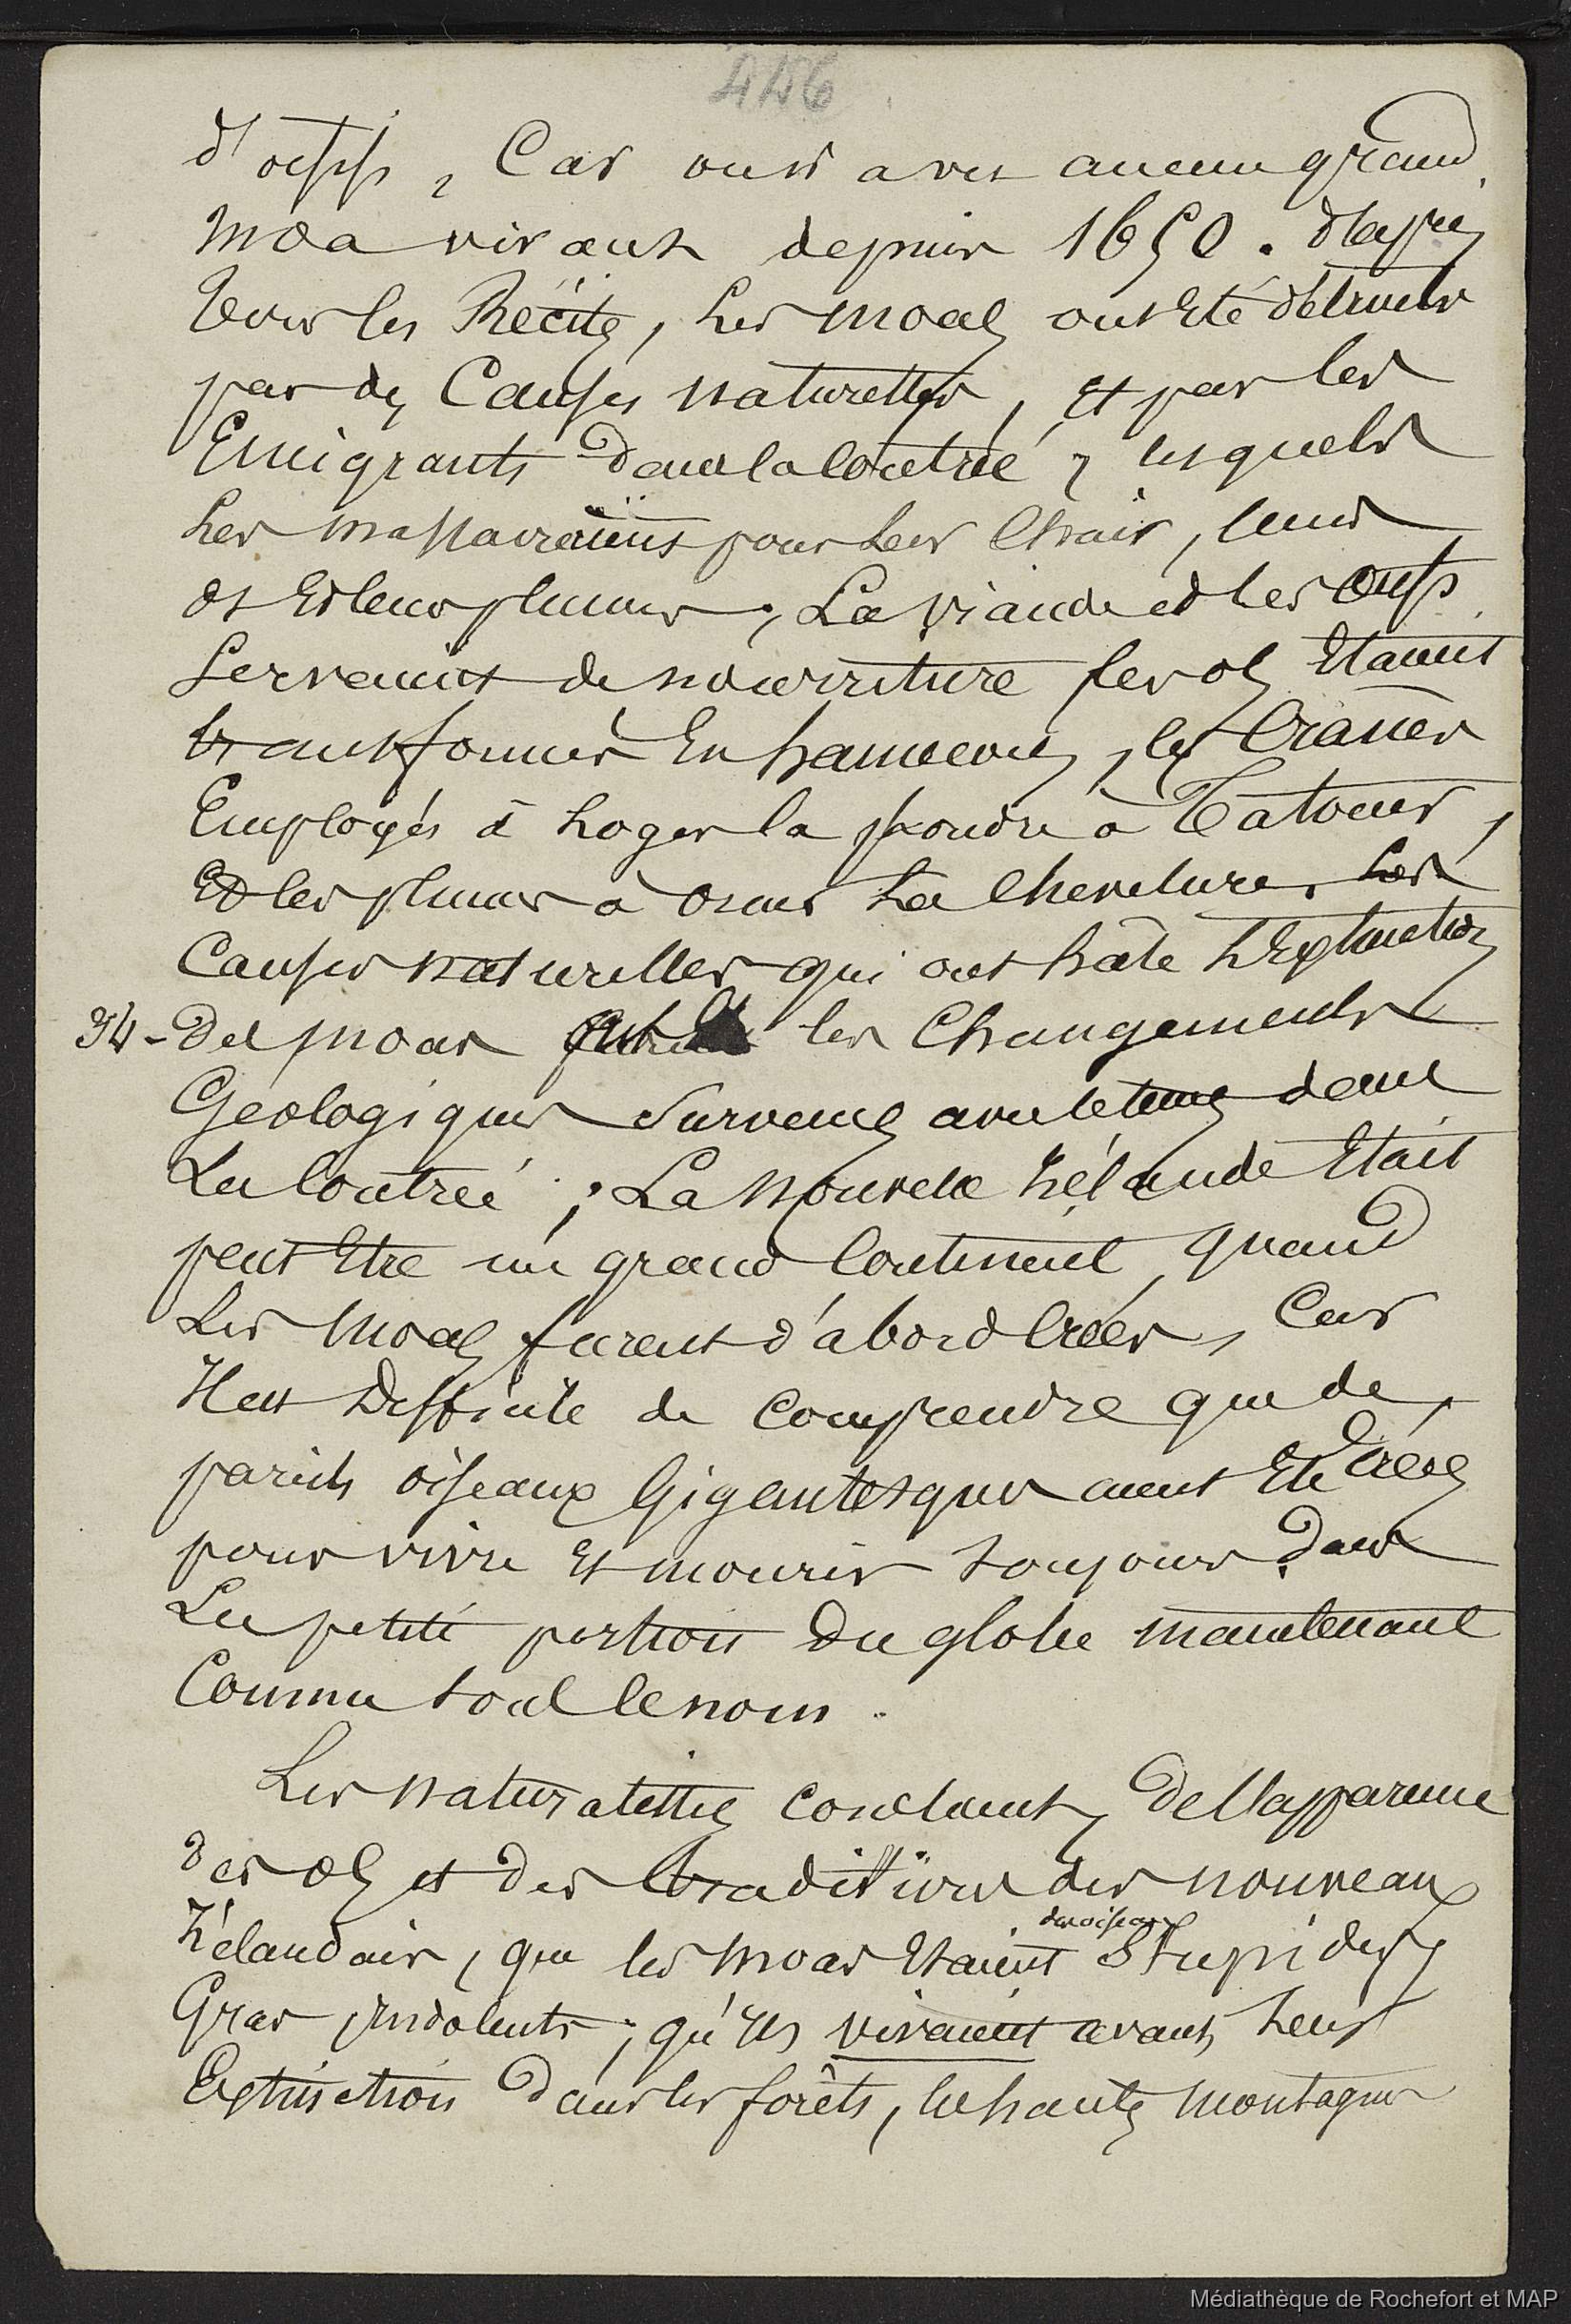 446
d'oeufs, Car on n'a vu aucun grand
moa vivant depuis 1650. d'après
tous les Récits, Les moas ont été détruits
par des Causes naturelles, et par les
Emigrants dans la Contrée, lesquels
Les massacraient pour leur Chair, leurs
os Et leurs plumes, La viande et les oeufs
Servaient de nourriture les os Etaient
transformés En hameçons, les Crânes
Employés à Loger la poudre à Tatouer,
Et les plumes à orner La Chevelure. Les
Causes naturelles qui ont hâté L'Extinction
34 - Des moas les Changements
Géologiques Survenus avec le temps dans
La Contrée; La Nouvelle Zélande Etait
peut Etre un grand Continent, quand
Les Moas furent d'abord Créés, Car
Il est Difficile de Comprendre que de
pareils oiseaux Gigantesques aient Eté Créés
pour vivre Et mourir toujours Dans
La petite portion Du globe maintenant
Connu sous le nom.
Les naturalistes Concluent, De l'apparence
des os et des traditions des nouveaux
des oiseaux
Zélandais, que les moas Etaient Stupides,
Gras Indolents; qu'Ils vivaient avant Leur
Extinction Dans les forêts, les hautes montagnes
Médiathèque de Rochefort et MAP